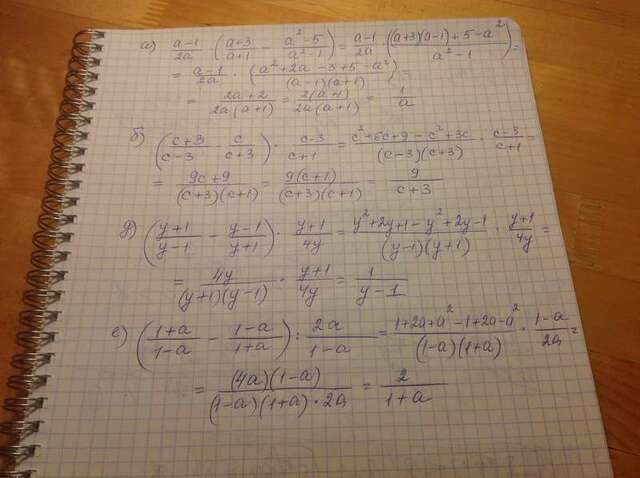 а) (a-1)/(2a) · ((a+3)/(a+1) - (a²-5)/(a²-1)) = (a-1)/(2a) · ((a+3)(a-1)+5-a²)/(a²-1) =
= (a-1)/(2a) · (a²+2a-3+5-a²)/((a-1)(a+1)) =
= (2a+2)/(2a(a+1)) = 2(a+1)/(2a(a+1)) = 1/a
б) ((c+3)/(c-3) - c/(c+3)) · (c-3)/(c+1) = (c²+6c+9-c²+3c)/((c-3)(c+3)) · (c-3)/(c+1) =
= (9c+9)/((c+3)(c+1)) = 9(c+1)/((c+3)(c+1)) = 9/(c+3)
д) ((y+1)/(y-1) - (y-1)/(y+1)) · (y+1)/(4y) = (y²+2y+1-y²+2y-1)/((y-1)(y+1)) · (y+1)/(4y) =
= 4y/((y+1)(y-1)) · (y+1)/(4y) = 1/(y-1)
е) ((1+a)/(1-a) - (1-a)/(1+a)) : 2a/(1-a) = (1+2a+a²-1+2a-a²)/((1-a)(1+a)) · (1-a)/(2a) =
= (4a)(1-a)/((1-a)(1+a)·2a) = 2/(1+a)